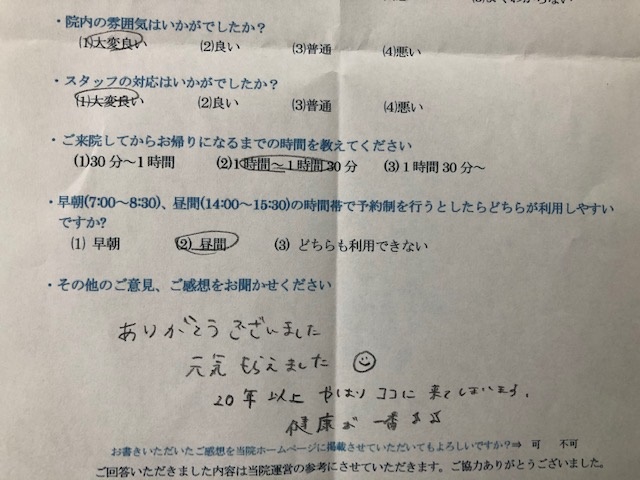 ・院内の雰囲気はいかがでしたか？
(1)大変良い (2)良い (3)普通 (4)悪い
・スタッフの対応はいかがでしたか？
(1)大変良い (2)良い (3)普通 (4)悪い
・ご来院してからお帰りになるまでの時間を教えてください
(1)30分～1時間 (2)1時間～1時間30分 (3)1時間30分～
・早朝(7:00～8:30)、昼間(14:00～15:30)の時間帯で予約制を行うとしたらどちらが利用しやすい
ですか?
(1) 早朝 (2) 昼間 (3) どちらも利用できない
・その他のご意見、ご感想をお聞かせください
ありがとうございました
元気もらえました
20年以上 やはり ココに 来てしまいます。
健康が 一番
お書きいただいたご感想を当院ホームページに掲載させていただいてもよろしいですか？⇒ 可 不可
ご回答いただきました内容は当院運営の参考にさせていただきます。ご協力ありがとうございました。